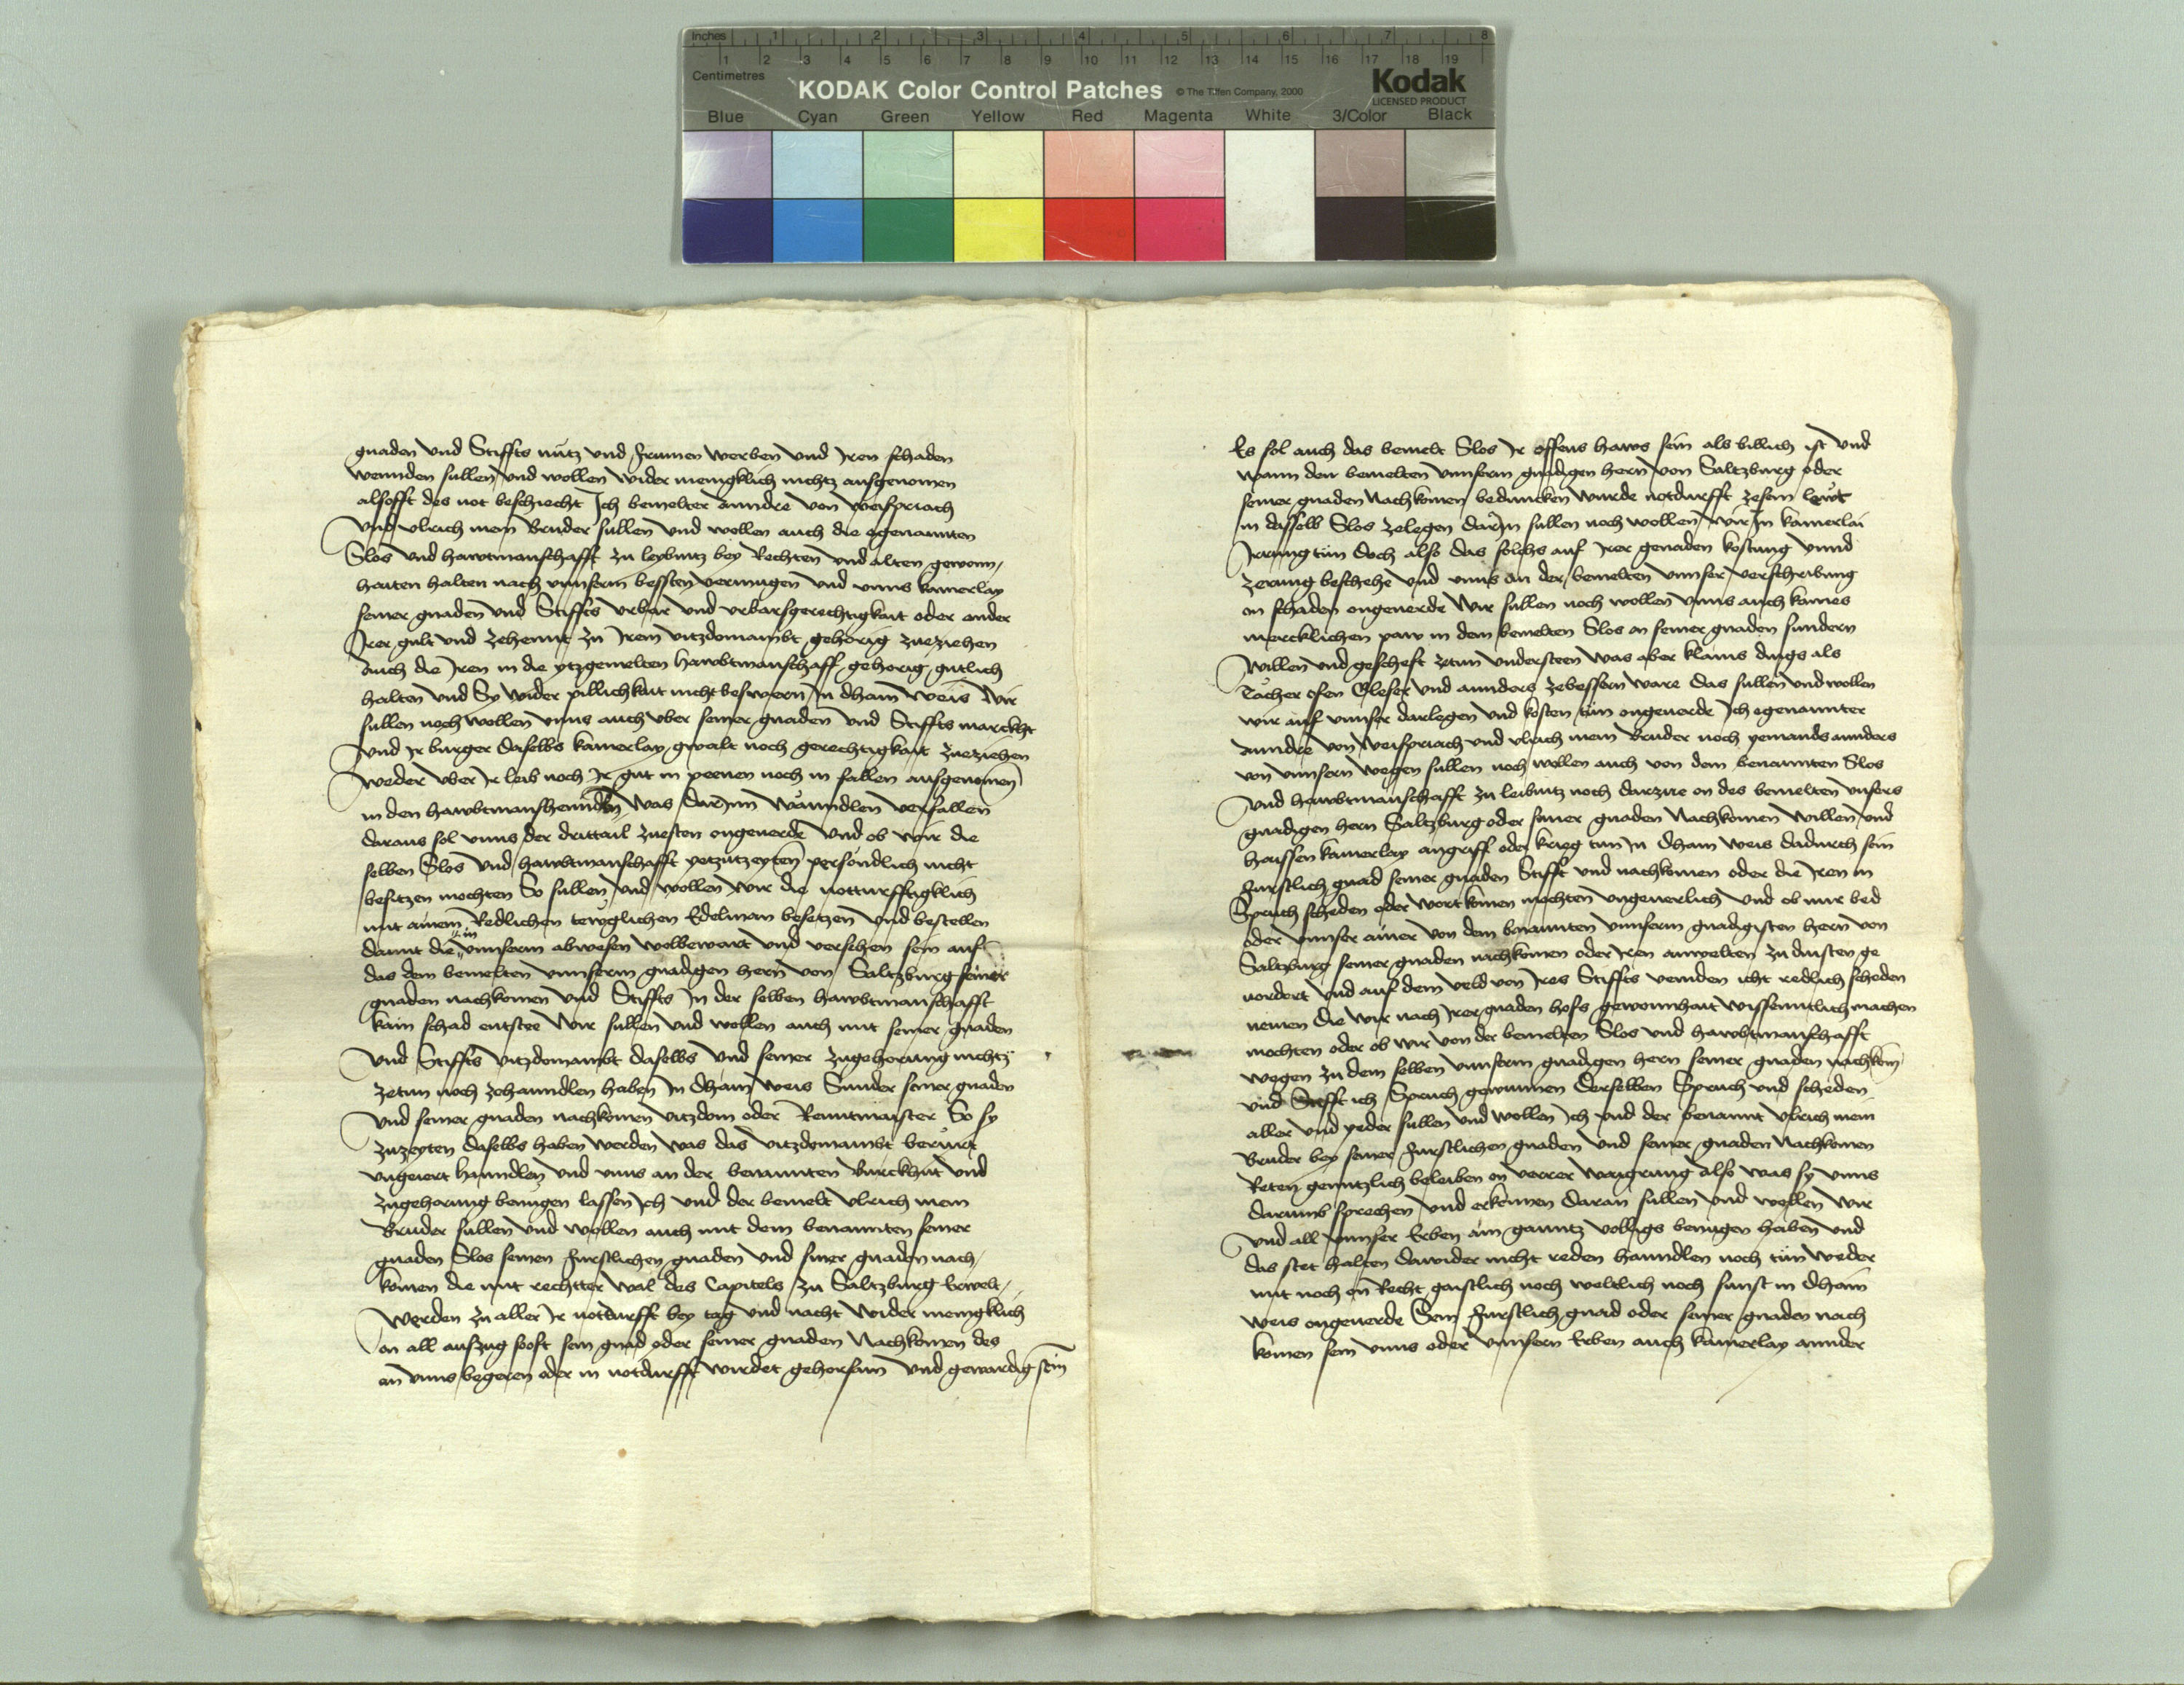 Inches 1 2 3 4 5 6 7 8
1 2 3 4 5 6 7 8 9 10 11 12 13 14 15 16 17 18 19
Centimetres
KODAK Color Control Patches © The Tiffen Company, 2000 Kodak
LICENSED PRODUCT
Blue Cyan Green Yellow Red Magenta White 3/Color Black
gnaden vnd Stiffts nutz vnd frumen werben vnd Jren schaden
wennden sullen vnd wollen wider menigklich nichtz ausgenomen
alsofft des not beschiecht Jch bemelter Anndre von Weispriach
vnd vlrich mein Bruder sullen vnd wollen auch die egenannten
Slos vnd hawbtmanschafft zu leybnitz bey Rechten vnd alten gewon,
haiten halten nach vnnserm bessten vermugen vnd vnns kainerlay
seiner gnaden vnd Stiffts vrbar vnd vrbarsgerechtigkait oder ander
Jrer gult vnd zehennt zu Jrem vitzdomambt gehorig zueziehen
Auch die Jren in die ytzgemelten hawbtmanschaff gehorig gutlich
halten vnd Sy wider pillichkait nicht beswern Jn dhain weis Wir
sullen noch wollen vnns auch vber seiner gnaden vnd Stiffts marckht
vnd Jr burger daselbs kainerlay gwalt noch gerechtigkait zueziehen
weder vber Jr leib noch Jr gut in peenen noch in fallen ausgenomen
in den hawbtmanshenndln was darJnn wanndlen verfallen
daraus sol vnns der drittail zuesten ongeuerde Vnd ob wir die
selben Slos vnd hawbtmanschafft yetzutzeyten persondlich nicht
besitzen mochten So sullen vnd wollen wir die notturfftigklich
mit ainem Redlichen tewglichen Edelman besetzen vnd bestellen
damit die in vnnserm abwesen wolbewart vnd versehen sein auf
das dem bemelten vnnserm gnadigen hern von Saltzburg seiner
gnaden nachkomen vnd Stiffts Jn der selben hawbtmanschafft
kain schad entstee Wir sullen vnd wollen auch mit seiner gnaden
vnd Stiffts vitzdomambt daselbs vnd seiner zugehorung nichtz
zetun noch zehanndlen haben Jn dhain weis Sunder seiner gnaden
vnd seiner gnaden nachkomen vitzdom oder Renntmaister So sy
zuzeyten daselbs haben werden was das vitzdomambt berurt
vngeiert hanndlen vnd vnns an der benannten Burckhut vnd
zugehorung benugen lassen Jch vnd der bemelt vlrich mein
Bruder sullen vnd wollen auch mit dem benannten seiner
gnaden Slos seinen furstlichen gnaden vnd siner gnaden nach,
komen die mit rechtter wal des Capitels zu Saltzburg Erwelt,
werden zu aller Jr notdurfft bey tag vnd nacht wider menigklich
on all aufzug sooft sein gnad oder seiner gnaden Nachkomen des
an vnns begeren oder in notdurfft wirdet gehorsam vnd gewardig sein
Es sol auch das bemelt Slos Jr offens haws sein als billich ist vnd
wann den bemelten vnnserm gnadigen hern von Saltzburg oder
seiner gnaden Nachkomen beduncken wurde notdurfft zesein lewt
in dasselb Slos zelegen darJn sullen noch wollen wir Jn kainerlai
Jrrung tun doch also das solchs auf Jrer genaden kostung vnnd
zerung beschehe vnd vnns an der bemelten vnnser verschreibung
on schaden ongeuerde Wir sullen noch wollen vnns auch kaines
mercklichen paw in dem bemelten Slos on seiner gnaden sundern
willen vnd gescheft zetun vndersteen was aber klains dings als
Tacher ofen Gleser vnd annders zebessern ware das sullen vnd wollen
wir auf vnnser darlegen vnd kosten tun ongeuerde Jch egenannter
Anndre von Weispriach vnd vlrich mein Bruder noch yemands annders
von vnnsern wegen sullen noch wollen auch von dem benannten Slos
vnd hawbtmanschafft zu leibnitz noch darzue on des bemelten vnsers
gnadigen hern Saltzburg oder seiner gnaden Nachkomen willen vnd
haissen kainerlay angriff oder krieg tun Jn dhain weis dadurch sein
furstlich gnad seiner gnaden Stifft vnd nachkomen oder die Jren in
Spruch scheden oder wort komen mochten vngeuerlich vnd ob mir bed
oder vnnser ainer von dem benannten vnnserm gnadigisten hern von
Saltzburg seiner gnaden nachkomen oder Jren anwelten zu dinsten ge
uordert vnd auf dem veld von Jres Stiffts veinden icht redlich scheden
nemen die wir nach Jrer gnaden hofs gewonnhait wissenntlich machen
mochten oder ob wir von der bemelten Slos vnd hawbtmanschafft
wegen zu dem selben vnnserm gnadigen hern seiner gnaden nachkom
vnd Stifft ich Spruch gewunnen derselben Spruch vnd scheden
aller vnd yeder sullen vnd wollen Jch vnd der benannt vlrich mein
Bruder bey seiner furstlichen gnaden vnd seiner gnaden Nachkomen
Reten genntzlich beleiben on verrer waigrung also was sy vnns
darumb sprechen vnd erkennen daran sullen vnd wollen wir
vnd all vnnser Erben ain ganntz volligs benugen haben vnd
das stet halten dawider nicht reden hanndlen noch tun weder
mit noch on Recht gaistlich noch weltlich noch sunst in dhain
weis ongeuerde Sein furstlich gnad oder seiner gnaden nach
komen sein vnns oder vnnsern Erben auch kainerlay annder